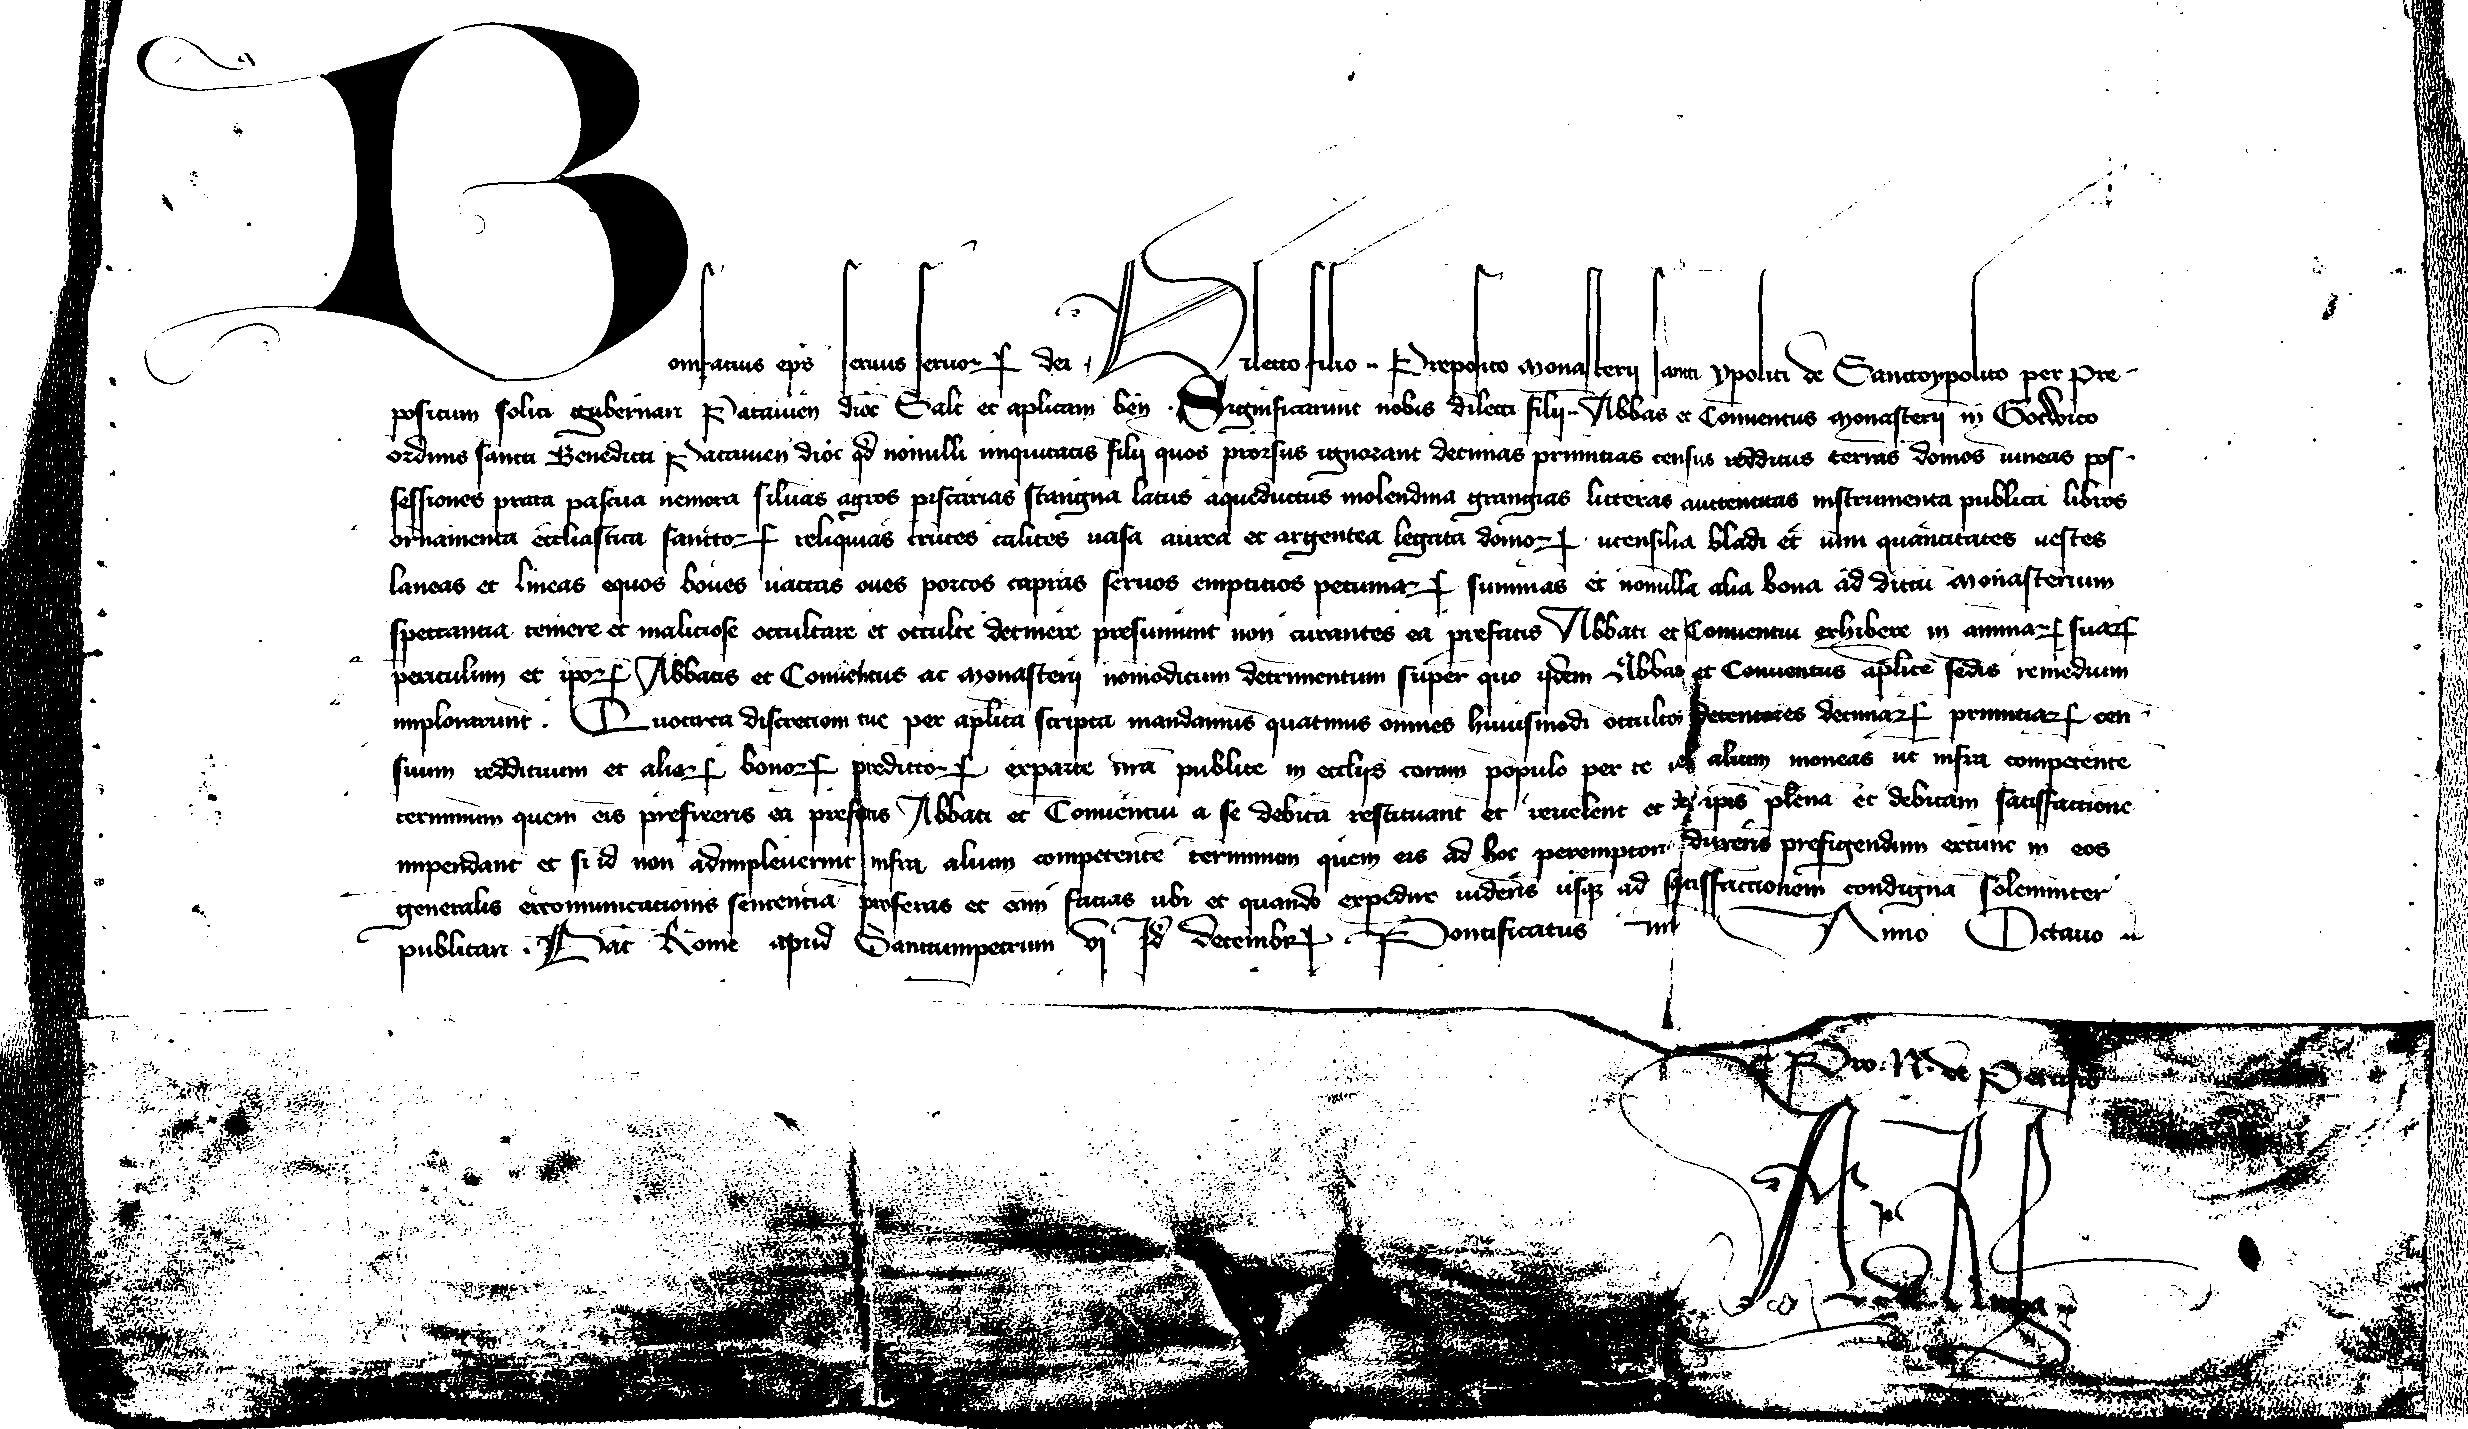 Bonifatius ep̄s seruus seruoꝝ dei Dilecto filio .. Preposito Monasterij sancti ypoliti de Sanctoypolito per pre-
positum soliti gubernari Patauien̄ dioc̄ Salt̄ et ap̄licam ben̄ . Significarunt nobis dilecti filij .. Abbas et Conuentus Monasterij in Gotwico
ordinis sancti Benedicti Patauien̄ dioc̄ qd̄ nonnulli iniquitatis filij quos prorsus ignorant decimas primitias census redditus terras domos vineas pos-
sessiones prata pascua nemora siluas agros piscarias stangna latus aqueductus molendina grangias litteras auctenticas instrumenta publica libros
ornamenta ecc̄liastica sanctoꝝ reliquias cruces calices uasa aurea et argentea legata domoꝝ utensilia bladi et uini quantitates uestes
laneas et lineas equos boues uaccas oues porcos capras seruos emptitios pecuniaꝝ summas et nonnulla alia bona ad dictū Monasterium
spectantia temere et maliciose occultare et occulte detinere presumunt non curantes ea prefatis Abbati et Conuentui exhibere in animaꝝ suaꝝ
periculum et ip̄oꝝ Abbatis et Conuentus ac Monasterij nonmodicum detrimentum super quo ijdem Abbas et Conuentus ap̄lice sedis remedium
implorarunt . Quocirca discretioni tue per ap̄lica scripta mandamus quatinus omnes huiusmodi occultos detentores decimaꝝ primitiaꝝ cen-
suum reddituum et alioꝝ bonoꝝ predictoꝝ exparte nr̄a publice in eccl̄ijs coram populo per te uel alium moneas ut infra competente
terminum quem eis prefixeris ea prefatis Abbati et Conuentui a se debita restituant et reuelent et de ip̄is plena et debitam satisfactione
impendant et si id non adimpleuerint infra alium competente terminum quem eis ad hoc peremptorie duxeris prefigendum extunc in eos
generalis excomunicationis sententia proferas et eam facias ubi et quando expedire uideris usqꝫ ad satisfactionem condigna solemniter
publicari . Dat̄ Rome apud Sanctumpetrum vi Id̄ decembꝝ . Pontificatus nr̄i Anno Octauo ..
Pro . N . de